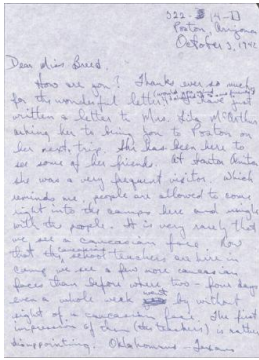 322- 14-D
Poston, Arizona
October 3, 1942
Dear Miss Breed
How are you? Thanks ever so much
for the wonderful letter. I have just
written a letter to Mrs. Lily McArthur
asking her to bring you to Poston on
her next trip. She has been here to
see some of her friends. At Santa Anita
she was a very frequent visitor. Which
reminds me, people are allowed to come
right into the camps here and mingle
with the people. It is very rarely that
we see a caucasian face. Now
that the school teachers are here in
camp we see a few more caucasian
faces than before where two - four days
even a whole week went by without
sight of a caucasian face. The first
impression of them (the teachers) is rather
disappointing. Oklahomans Texans